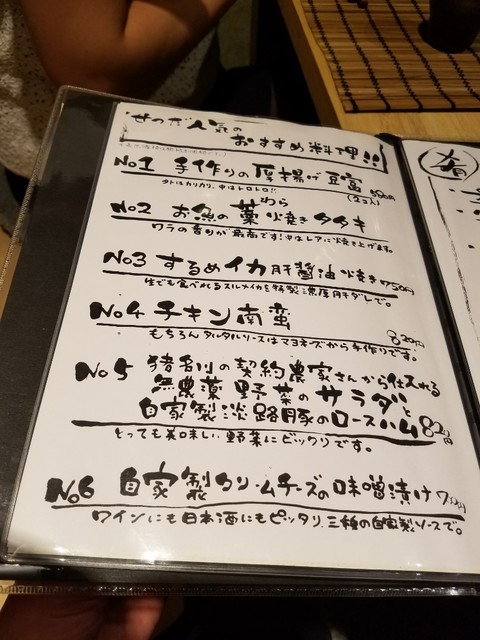 人気の
おすすめ料理!!
No1 手作りの厚揚げ豆富
(2コ入)
外はカリカリ、中はトロトロ!!
わら
No2 お魚の藁焼きタタキ
ワラの香りが最高です!中はレアに焼き上げます。
No3 するめイカ肝醤油焼き 750円
生でも食べれるスルメイカを特製濃厚肝ダレで。
No4 チキン南蛮 820円
もちろんタルタルソースはマヨネーズから手作りです。
No5 猪名川の契約農家さんから仕入れる
無農薬野菜のサラダと
自家製淡路豚のロースハム 820円
とっても美味しい野菜にビックリです。
No6 自家製クリームチーズの味噌漬け
ワインにも日本酒にもピッタリ 三種の自家製ソースで。